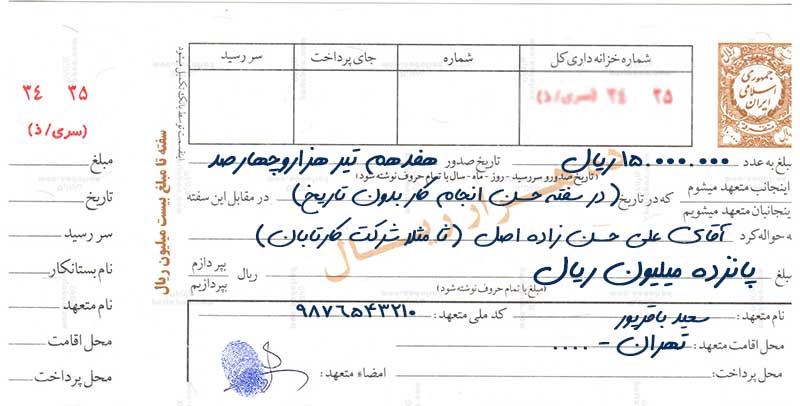 جمهوری
اسلامی
ایران
شماره خزانه داری کل شماره جای پرداخت سر رسید
۳۵ ۳۴ (سری/ذ)
مبلغ به عدد ۱۵۰۰۰۰۰۰۰ ریال تاریخ صدور هفدهم تیر هزار و چهارصد
(تاریخ صدور و سررسید - روز - ماه - سال با تمام حروف نوشته شود)
اینجانب متعهد میشوم
اینجانبان متعهد میشویم
که در تاریخ (در سفته حسن انجام کار بدون تاریخ) در مقابل این سفته
به حواله کرد آقای علی حسن زاده اصل (تا مثلا شرکت کارتابان)
مبلغ پانزده میلیون ریال ریال بپردازم
بپردازیم
(مبلغ با تمام حروف نوشته شود)
نام متعهد: سعید باقرپور کد ملی متعهد: ۹۸۷۶۵۴۳۲۱۰
محل اقامت متعهد: تهران - ....
محل پرداخت: امضاء متعهد:
سفته تا مبلغ بیست میلیون ریال
۳۵ ۳۴
(سری/ذ)
مبلغ
تاریخ
سر رسید
نام بستانکار
نام متعهد
محل اقامت
محل پرداخت